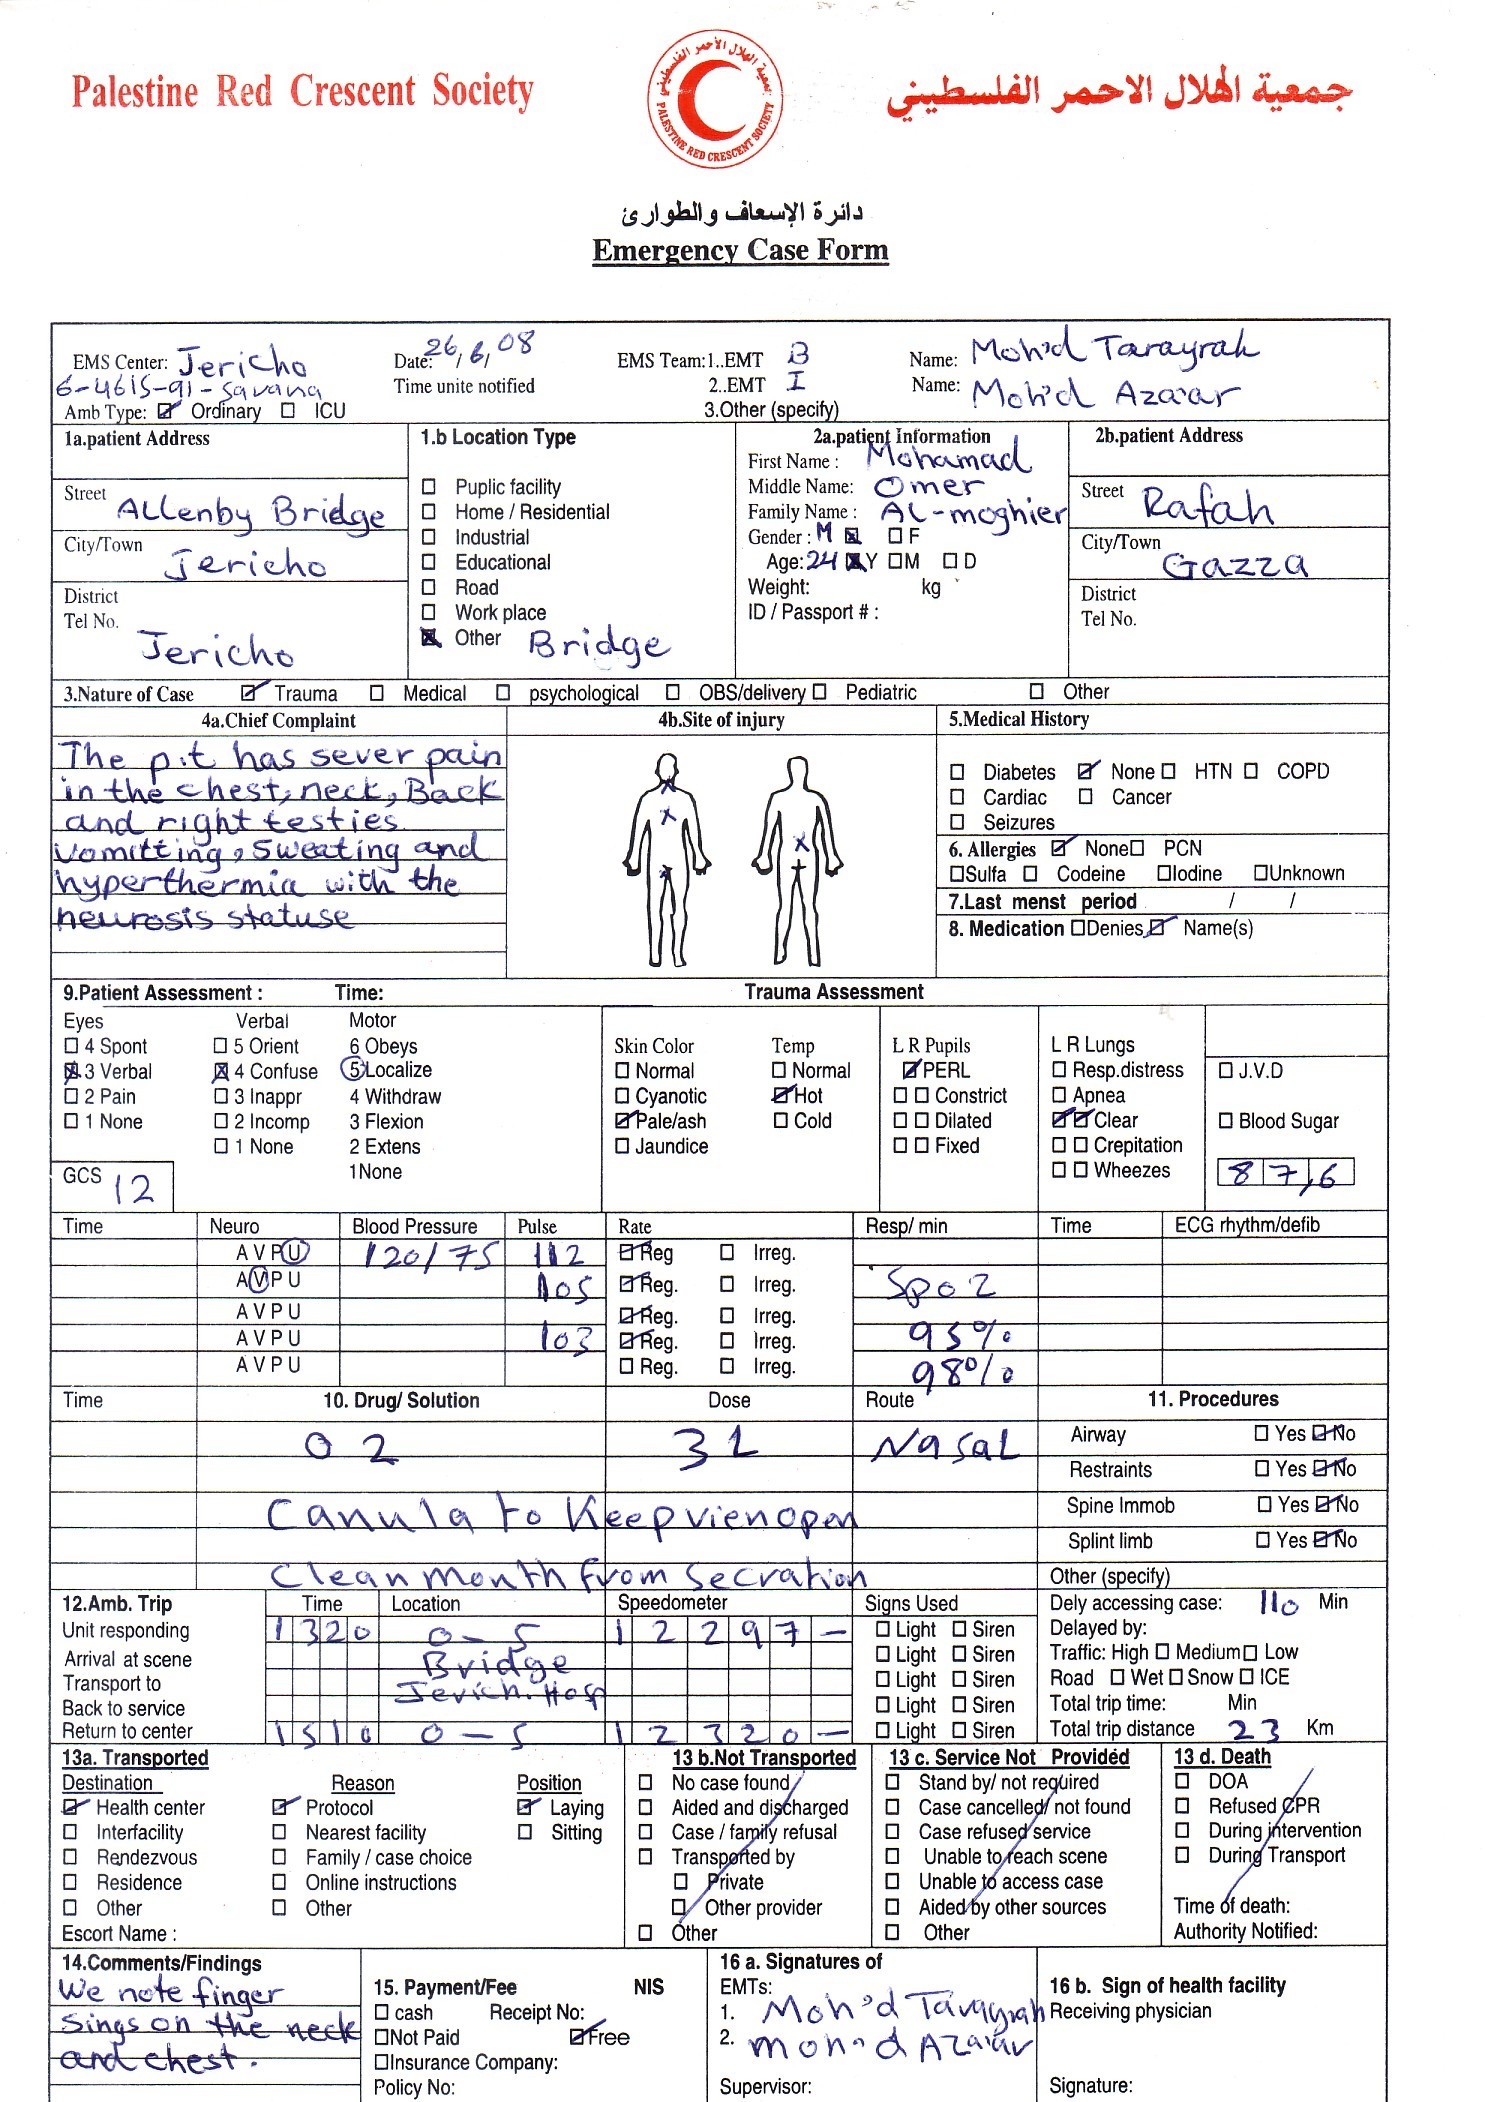 Palestine Red Crescent Society
جمعية الهلال الاحمر الفلسطيني
جمعية الهلال الأحمر الفلسطيني
PALESTINE RED CRESCENT SOCIETY
دائرة الإسعاف والطوارئ
Emergency Case Form
EMS Center: Jericho Date: 26/6/08 EMS Team:1..EMT B Name: Moh'd Tarayrah
6-4615-91-Savana Time unite notified 2..EMT I Name: Moh'd Aza'ar
Amb Type: Ordinary ICU 3.Other (specify)
1a.patient Address
Street Allenby Bridge
City/Town Jericho
District
Tel No.
Jericho
1.b Location Type
Puplic facility
Home / Residential
Industrial
Educational
Road
Work place
Other Bridge
2a.patient Information
First Name : Mohamad
Middle Name: Omer
Family Name : AL-moghier
Gender : M F
Age: 24 Y M D
Weight: kg
ID / Passport # :
2b.patient Address
Street Rafah
City/Town Gazza
District
Tel No.
3.Nature of Case Trauma Medical psychological OBS/delivery Pediatric Other
4a.Chief Complaint
The p.t has sever pain
in the chest, neck, Back
and right testies
vomitting, sweating and
hyperthermia with the
neurosis statuse
4b.Site of injury
5.Medical History
Diabetes None HTN COPD
Cardiac Cancer
Seizures
6. Allergies None PCN
Sulfa Codeine Iodine Unknown
7.Last menst period / /
8. Medication Denies Name(s)
9.Patient Assessment : Time: Trauma Assessment
Eyes Verbal Motor
4 Spont 5 Orient 6 Obeys
3 Verbal 4 Confuse 5 Localize
2 Pain 3 Inappr 4 Withdraw
1 None 2 Incomp 3 Flexion
1 None 2 Extens
1None
GCS 12
Skin Color Temp
Normal Normal
Cyanotic Hot
Pale/ash Cold
Jaundice
L R Pupils
PERL
Constrict
Dilated
Fixed
L R Lungs
Resp.distress
Apnea
Clear
Crepitation
Wheezes
J.V.D
Blood Sugar
87,6
Time Neuro Blood Pressure Pulse Rate Resp/ min Time ECG rhythm/defib
A V P U 120/75 112 Reg Irreg.
A V P U 105 Reg. Irreg. Spo2
A V P U Reg. Irreg.
A V P U 103 Reg. Irreg. 95%
A V P U Reg. Irreg. 98%
Time 10. Drug/ Solution Dose Route
O2 3L Nasal
Canula to Keep vien open
Clean month from secration
11. Procedures
Airway Yes No
Restraints Yes No
Spine Immob Yes No
Splint limb Yes No
Other (specify)
12.Amb. Trip Time Location Speedometer Signs Used
Unit responding 1320 0-5 12297- Light Siren
Arrival at scene Bridge Light Siren
Transport to Jerich. Hosp Light Siren
Back to service Light Siren
Return to center 1510 0-5 12320- Light Siren
Dely accessing case: 110 Min
Delayed by:
Traffic: High Medium Low
Road Wet Snow ICE
Total trip time: Min
Total trip distance 23 Km
13a. Transported
Destination Reason Position
Health center Protocol Laying
Interfacility Nearest facility Sitting
Rendezvous Family / case choice
Residence Online instructions
Other Other
Escort Name :
13 b.Not Transported
No case found
Aided and discharged
Case / family refusal
Transported by
Private
Other provider
Other
13 c. Service Not Provided
Stand by/ not required
Case cancelled/ not found
Case refused service
Unable to reach scene
Unable to access case
Aided by other sources
Other
13 d. Death
DOA
Refused CPR
During intervention
During Transport
Time of death:
Authority Notified:
14.Comments/Findings
We note finger
Sings on the neck
and chest.
15. Payment/Fee NIS
cash Receipt No:
Not Paid Free
Insurance Company:
Policy No:
16 a. Signatures of
EMTs:
1. Moh'd Tarayrah
2. moh'd Aza'ar
Supervisor:
16 b. Sign of health facility
Receiving physician
Signature: